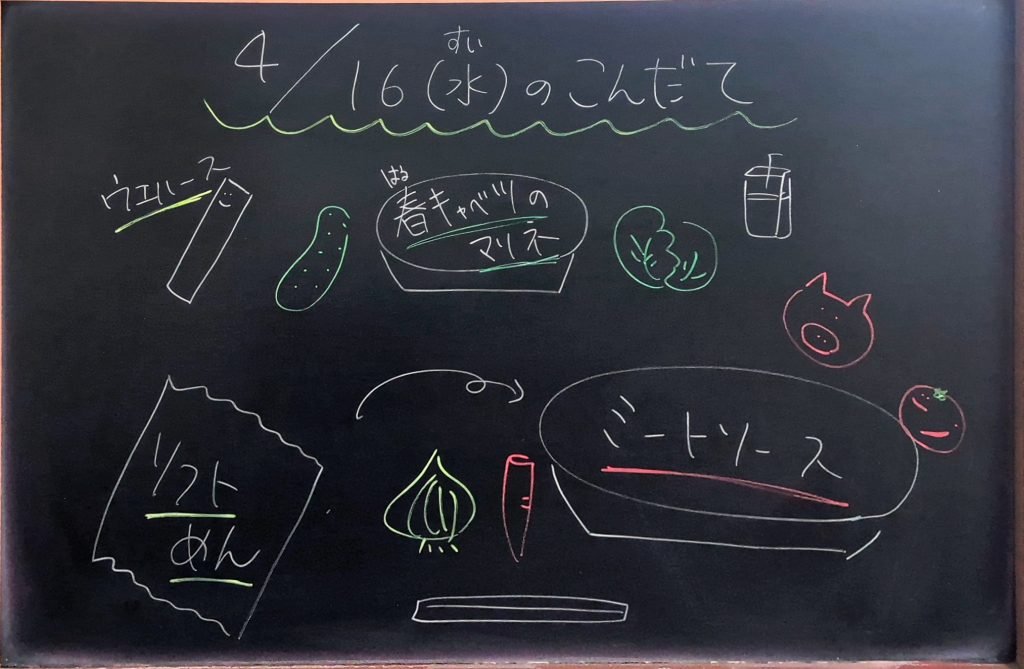 4/16(水)のこんだて
すい
ウエハース
春キャベツの
はる
マリネー
ミートソース
ソフト
めん